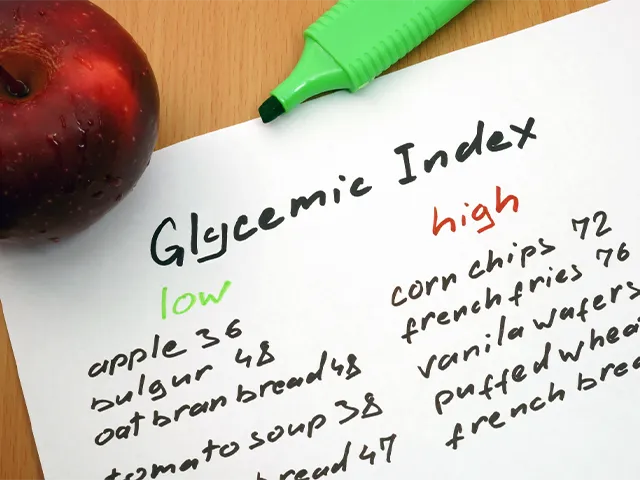 Glycemic Index
low
apple 36
bulgur 48
oat bran bread 48
tomato soup 38
bread 47
high
corn chips 72
french fries 76
vanila wafers
puffed whea
french brea